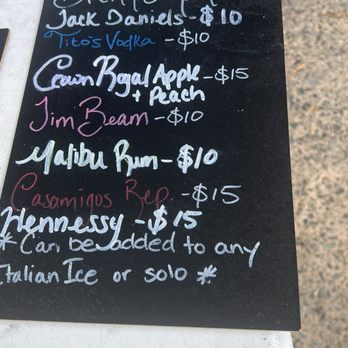 Jack Daniels - $10
Tito's Vodka - $10
Crown Royal Apple - $15
+ Peach
Jim Beam - $10
Malibu Rum - $10
Casamigos Rep. - $15
Hennessy - $15
* Can be added to any
Italian Ice or solo *